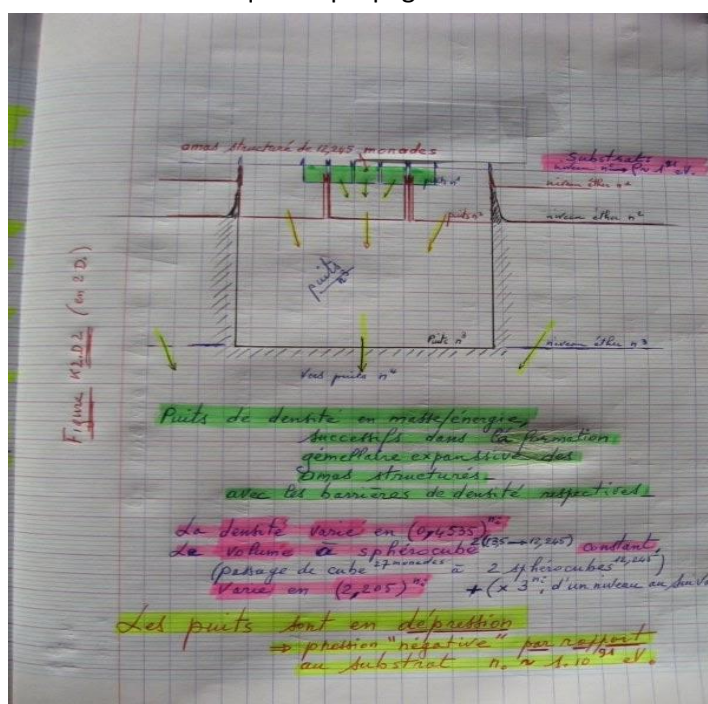 amas structuré de 12,245 monades
Substrats
niveau
puits n¹
niveau éther n¹
puits n²
niveau éther n²
puits n³
Figure K2.D2 (en 2D.)
Puits n³
niveau éther n³
Vers puits n⁴
Puits de densité en masse/énergie,
successifs dans la formation
gémellaire expanssive des
amas structurés.
avec les barrières de densité respectives.
La densité varie en (0,4535)ⁿⁱ
Le volume à sphérocube constant,
(passage de cube 27 monades à 2 sphérocubes 12,245)
Varie en (2,205)ⁿⁱ + (x 3ⁿⁱ, d'un niveau au
Les puits sont en dépression
⇒ pression "négative" par rapport
au substrat n₀ ≈ 1.10⁹¹ eV.